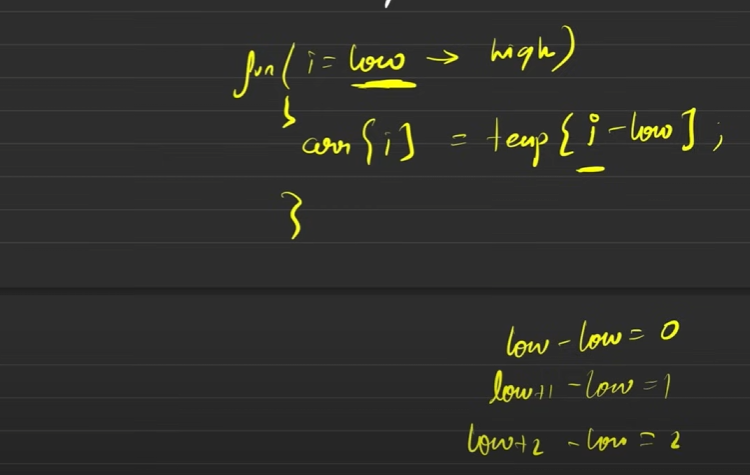 for( i = low → high)
{
arr[i] = temp[i - low];
}
low - low = 0
low+1 - low = 1
low+2 - low = 2